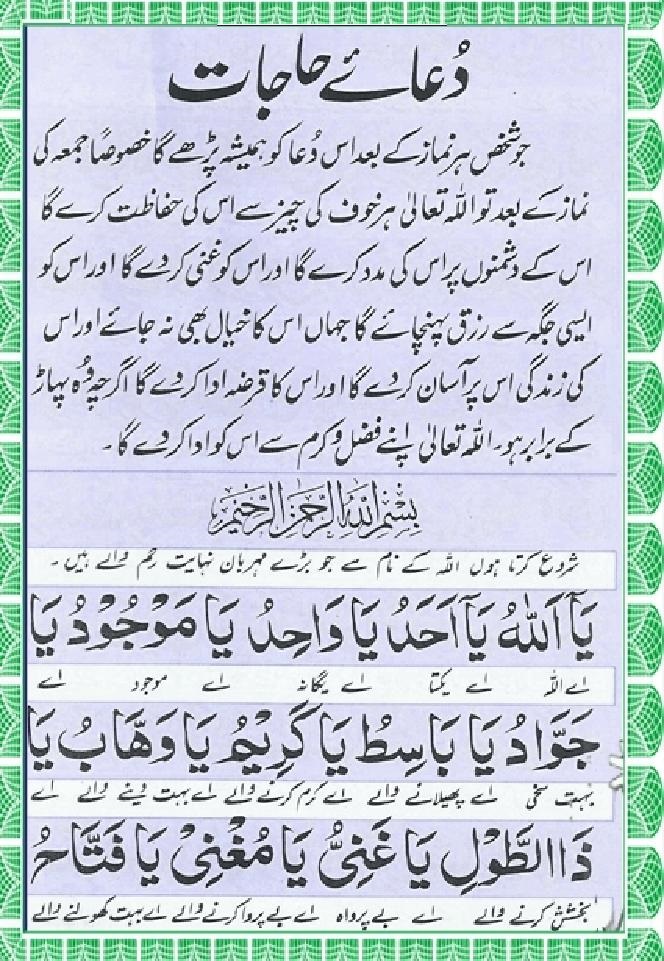 دُعائے حاجات
جو شخص ہر نماز کے بعد اس دُعا کو ہمیشہ پڑھے گا خصوصًا جمعہ کی
نماز کے بعد تو اللہ تعالیٰ ہر خوف کی چیز سے اس کی حفاظت کرے گا
اس کے دشمنوں پر اس کی مدد کرے گا اور اس کو غنی کر دے گا اور اس کو
ایسی جگہ سے رزق پہنچائے گا جہاں اس کا خیال بھی نہ جائے اور اس
کی زندگی اس پر آسان کر دے گا اور اس کا قرضہ ادا کر دے گا اگرچہ وُہ پہاڑ
کے برابر ہو۔ اللہ تعالیٰ اپنے فضل و کرم سے اس کو ادا کر دے گا۔
بِسْمِ اللّٰهِ الرَّحْمٰنِ الرَّحِيْمِ
شروع کرتا ہوں اللہ کے نام سے جو بڑے مہربان نہایت رحم والے ہیں۔
يَآ اَللّٰهُ يَآ اَحَدُ يَا وَاحِدُ يَا مَوْجُوْدُ يَا
اے اللہ اے یکتا اے یگانہ اے موجود اے
جَوَّادُ يَا بَاسِطُ يَا كَرِيْمُ يَا وَهَّابُ يَا
بہت سخی اے پھیلانے والے اے کرم کرنے والے اے بہت دینے والے اے
ذَا الطَّوْلِ يَا غَنِىُّ يَا مُغْنِىْ يَا فَتَّاحُ
بخشش کرنے والے اے بے پرواہ اے بے پروا کرنے والے اے بہت کھولنے والے